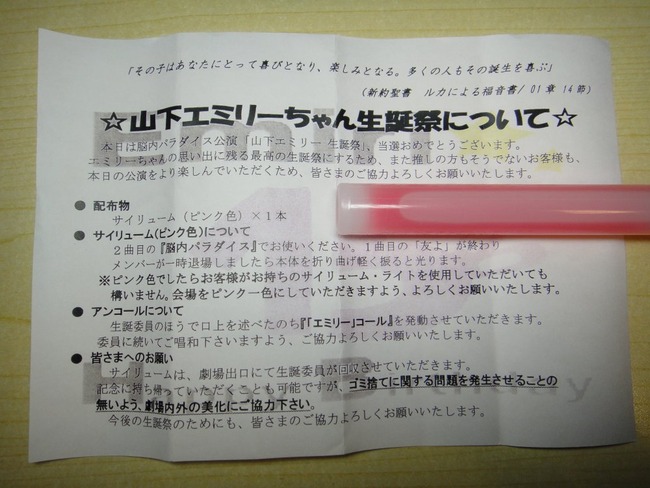 「その子はあなたにとって喜びとなり、楽しみとなる。多くの人もその誕生を喜ぶ」
(新約聖書 ルカによる福音書/01章 14節)
☆山下エミリーちゃん生誕祭について☆
本日は脳内パラダイス公演「山下エミリー 生誕祭」、当選おめでとうございます。
エミリーちゃんの思い出に残る最高の生誕祭にするため、また推しの方もそうでないお客様も、
本日の公演をより楽しんでいただくため、皆さまのご協力よろしくお願いいたします。
● 配布物
サイリューム(ピンク色)×1本
● サイリューム(ピンク色)について
2曲目の『脳内パラダイス』でお使いください。1曲目の「友よ」が終わり
メンバーが一時退場しましたら本体を折り曲げ軽く振ると光ります。
※ピンク色でしたらお客様がお持ちのサイリューム・ライトを使用していただいても
構いません。会場をピンク一色にしていただきますよう、よろしくお願いいたします。
● アンコールについて
生誕委員のほうで口上を述べたのち『「エミリー」コール』を発動させていただきます。
委員に続いてご唱和下さいますよう、ご協力よろしくお願いいたします。
● 皆さまへのお願い
サイリュームは、劇場出口にて生誕委員が回収させていただきます。
記念に持ち帰っていただくことも可能ですが、ゴミ捨てに関する問題を発生させることの
無いよう、劇場内外の美化にご協力下さい。
今後の生誕祭のためにも、皆さまのご協力よろしくお願いいたします。
Happy Birthday